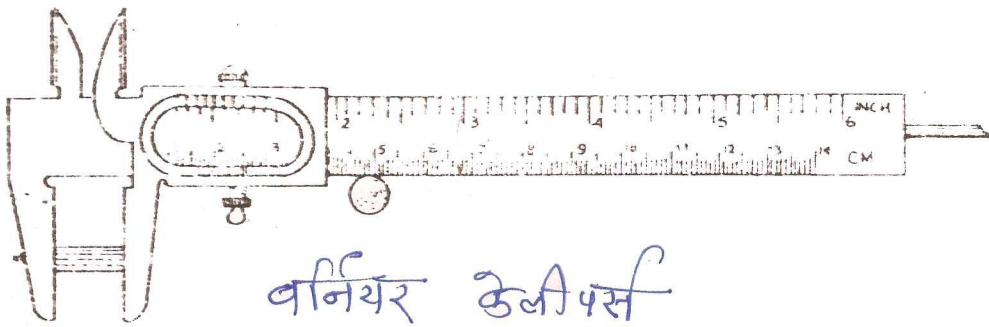 2 3 4 5 6 INCH
2 3 5 6 7 8 9 10 11 12 13 14 CM
वर्नियर केलीपर्स